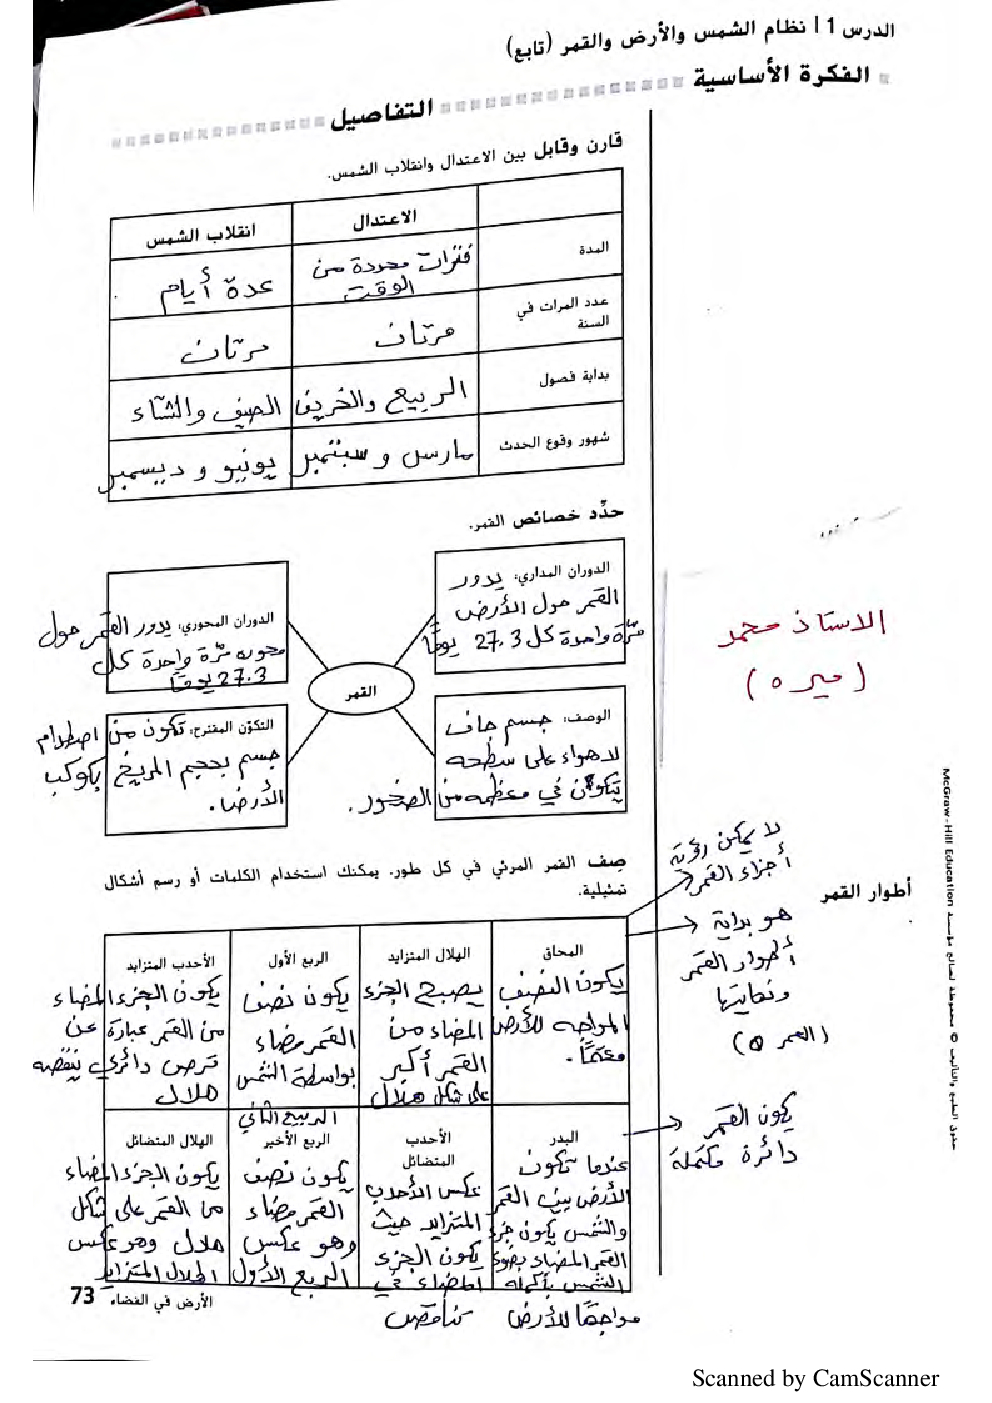 الدرس 1 | نظام الشمس والأرض والقمر (تابع)
الفكرة الأساسية
التفاصيل
قارن وقابل بين الاعتدال وانقلاب الشمس.
الاعتدال انقلاب الشمس
المدة فترات محددة من الوقت عدة أيام
عدد المرات في السنة مرتان مرتان
بداية فصول الربيع والخريف الصيف والشتاء
شهور وقوع الحدث مارس و سبتمبر يونيو و ديسمبر
حدِّد خصائص القمر.
الدوران المداري: يدور
القمر حول الأرض
مرّة واحدة كل 27.3 يومًا
الدوران المحوري: يدور القمر حول
محوره مرّة واحدة كل
27.3 يومًا
القمر
الوصف: جسم جاف
لا هواء على سطحه
يتكون في معظمه من الصخور.
التكوّن المقترح: تكون من اصطدام
جسم بحجم المريخ بكوكب
الأرض.
الاستاذ محمد
(ميره)
أطوار القمر
صِف القمر المرئي في كل طور. يمكنك استخدام الكلمات أو رسم أشكال
تمثيلية.
لا يمكن رؤية
أجزاء القمر
هو بداية
أطوار القمر
ونهايتها
المحاق
يكون النصف
المواجه للأرض
معتمًا.
الهلال المتزايد
يصبح الجزء
المضاء من
القمر أكبر
على شكل هلال
الربع الأول
يكون نصف
القمر مضاء
بواسطة الشمس
الأحدب المتزايد
يكون الجزء المضاء
من القمر عبارة عن
قرص دائري ينقصه
هلال
يكون القمر
دائرة مكتملة
البدر
عندما تكون
الأرض بين القمر
والشمس يكون جزء
القمر المضاء بضوء
الشمس بأكمله
مواجهًا للأرض
الأحدب
المتضائل
عكس الأحدب
المتزايد حيث
يكون الجزء
المضاء في
تناقص
الربيع الثاني
الربع الأخير
يكون نصف
القمر مضاء
وهو عكس
الربع الأول
الهلال المتضائل
يكون الجزء المضاء
من القمر على شكل
هلال وهو عكس
الهلال المتزايد
الأرض في الفضاء 73
McGraw-Hill Education حقوق الطبع والتأليف © محفوظة لصالح مؤسسة
Scanned by CamScanner